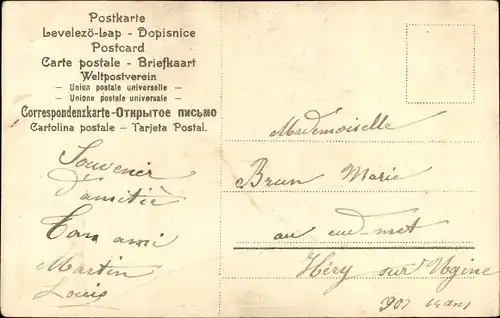 Postkarte
Levelezö-Lap - Dopisnice
Postcard
Carte postale - Briefkaart
Weltpostverein
- Union postale universelle -
- Unione postale universale -
Correspondenzkarte-Открытое письмо
Cartolina postale - Tarjeta Postal.
Souvenir
d'amitié
Ton ami
Martin
Louis
Mademoiselle
Brun Marie
au
Héry sur Ugine
907